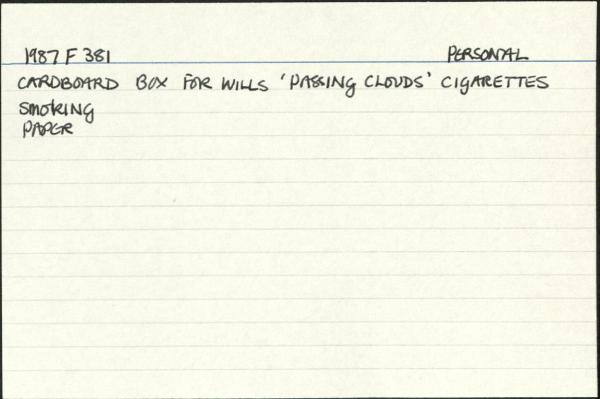 1987 F 381 PERSONAL
CARDBOARD BOX FOR WILLS 'PASSING CLOUDS' CIGARETTES
SMOKING
PAPER